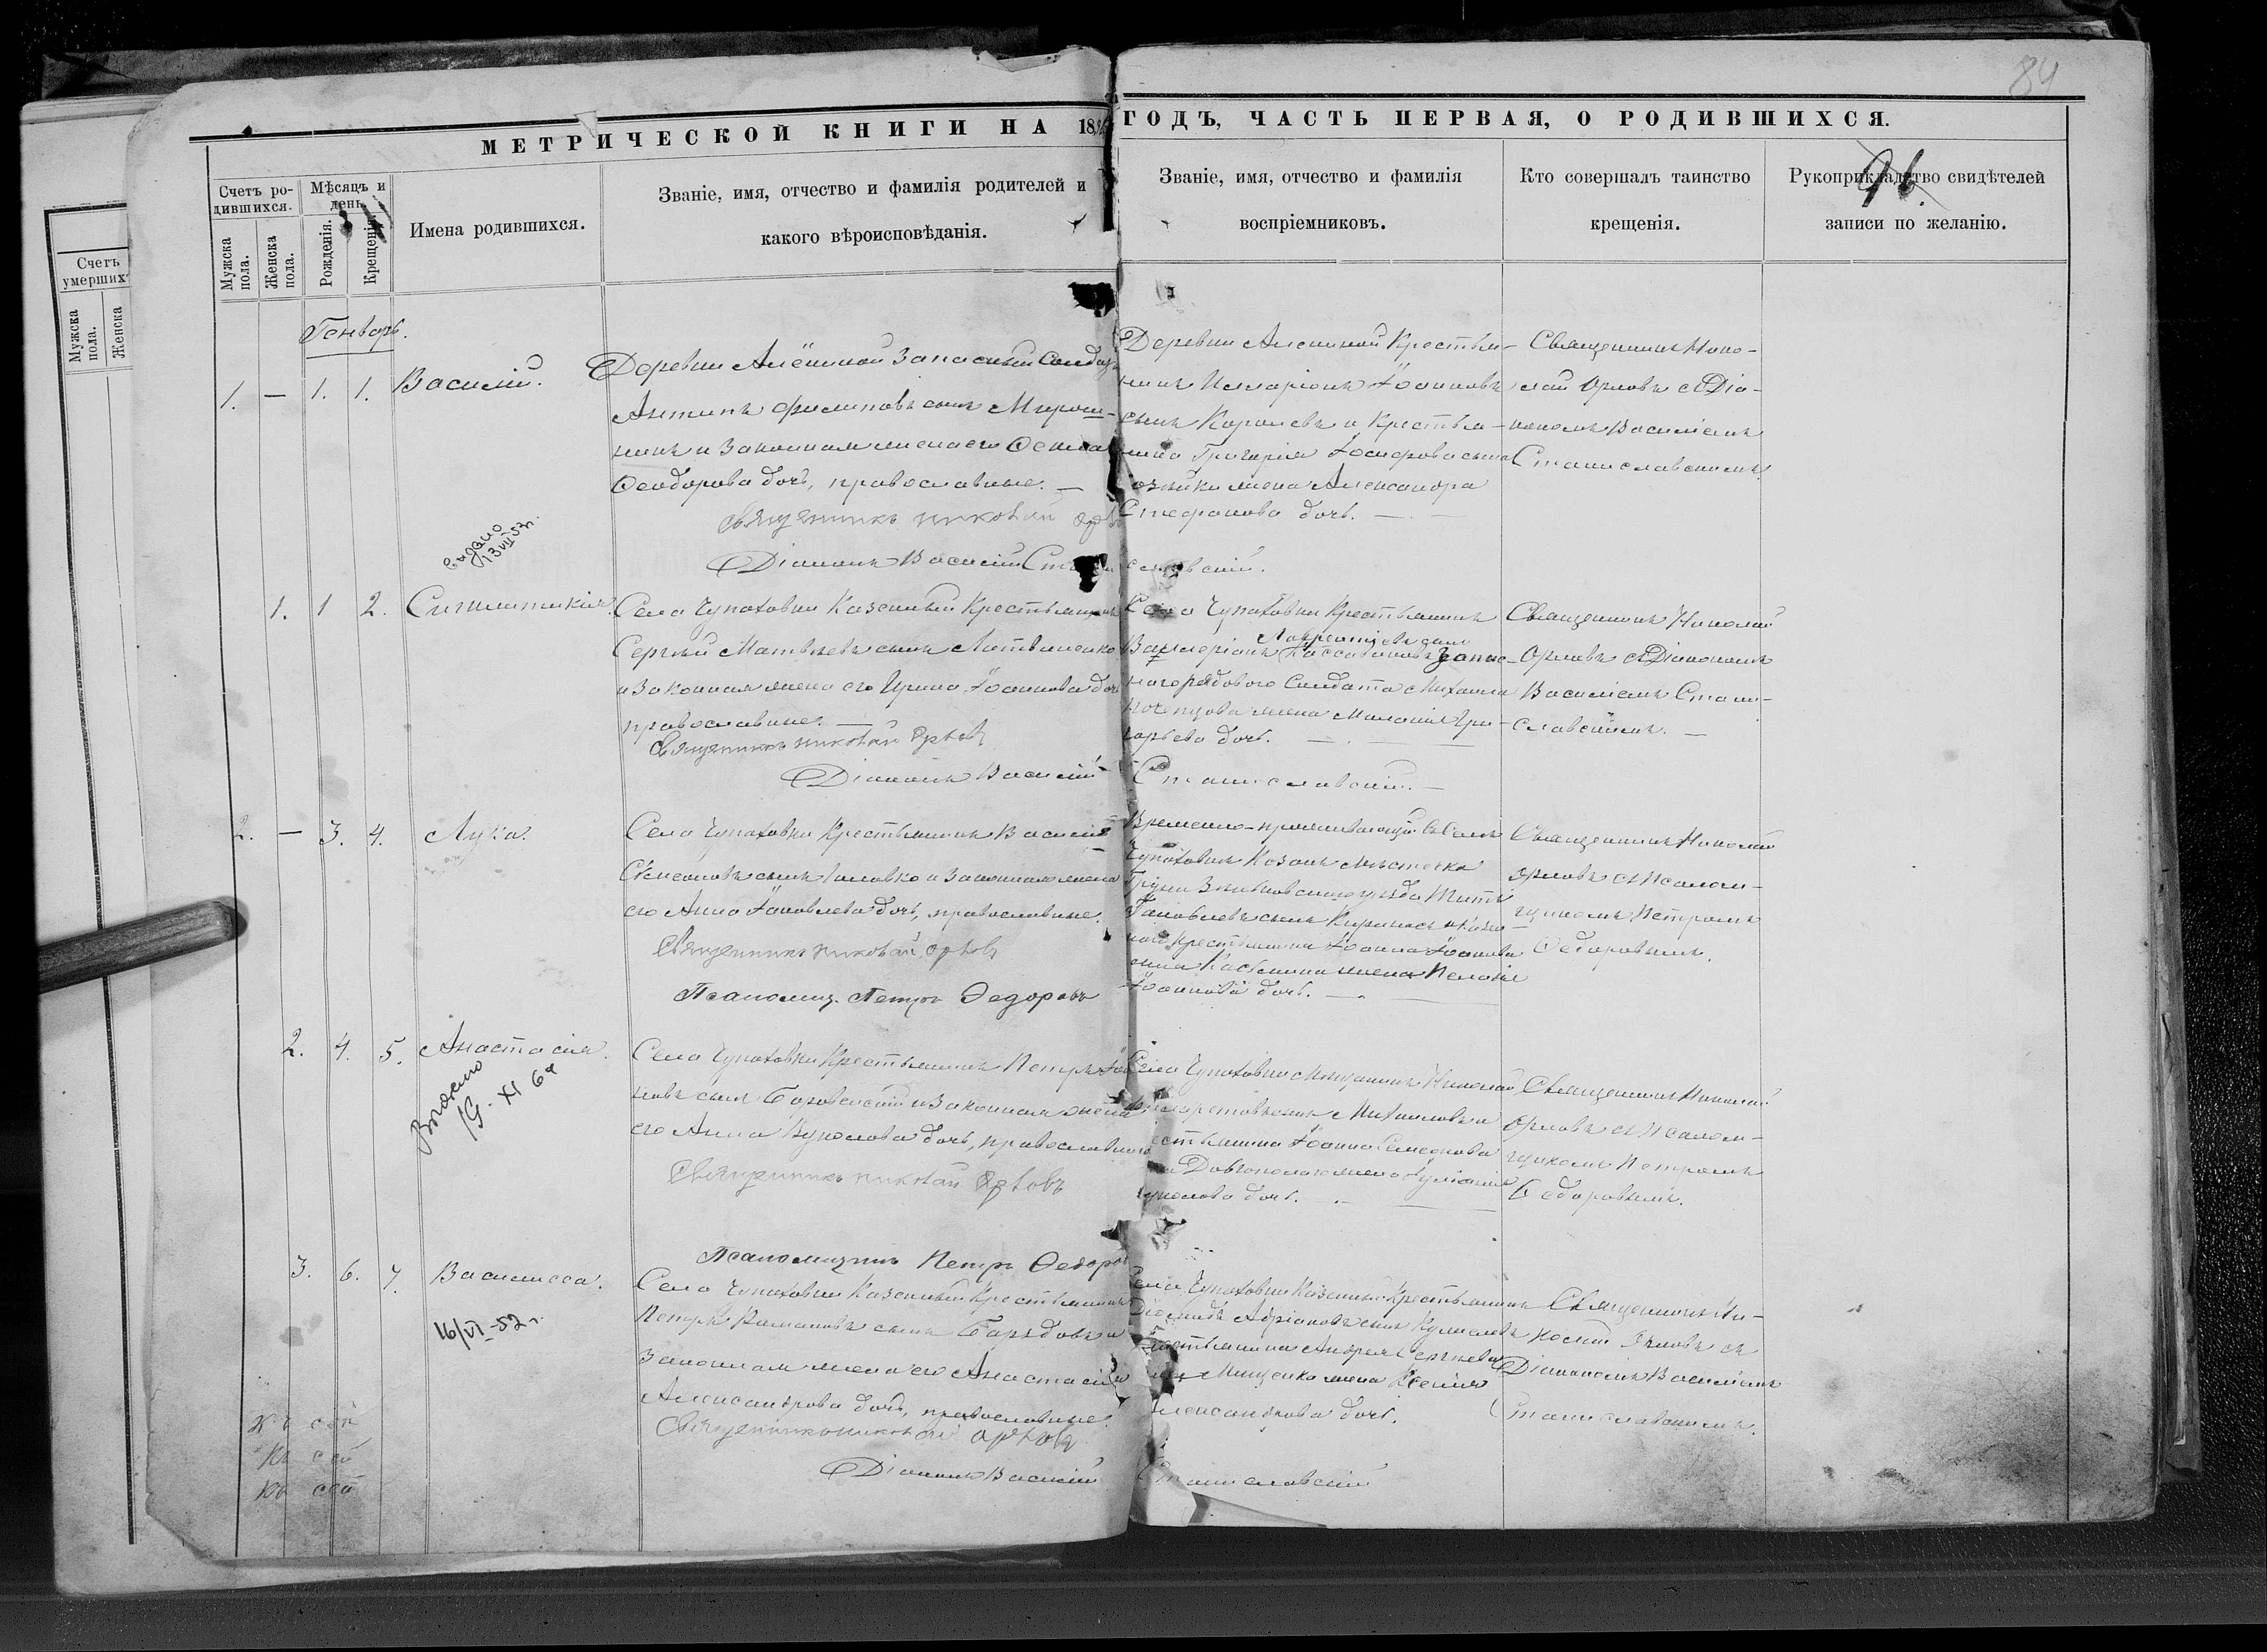 84
МЕТРИЧЕСКОЙ КНИГИ НА 18 ГОДЪ, ЧАСТЬ ПЕРВАЯ, О РОДИВШИХСЯ.
96.
Счетъ
умерших
Мужска пола.
Женска
Счетъ ро-
дившихся.
Мужска пола.
Женска пола.
Мѣсяцъ и
день
Рожденія.
Крещенія.
Имена родившихся.
Званіе, имя, отчество и фамилія родителей и
какого вѣроисповѣданія.
Званіе, имя, отчество и фамилія
воспріемниковъ.
Кто совершалъ таинство
крещенія.
Рукоприкладство свидѣтелей
записи по желанію.
Генварь.
1. — 1. 1. Василій.
Деревни Алёшиной Запасный Солдатъ
Антипъ Филиповъ сынъ Мирош-
никъ и Законная жена его
Феодорова дочь, православные. —
Священникъ Николай Орловъ
Діаконъ Василій Станиславскій.
Деревни Алешиной Крестья-
нинъ Илларіонъ Іоанновъ
сынъ Королевъ и Крестья-
нина Григорія Іосифова сына
жена Александра
Стефанова дочь. —
Священникъ Нико-
лай Орловъ съ Діа-
кономъ Василіемъ
Станиславскимъ.
Выдано
13 VII 52 г.
1. 1 2. Синклитикія
Села Чупаховки Казенный Крестьянинъ
Сергѣй Матвѣевъ сынъ Литвиненко
и Законная жена его Ирина Іоаннова дочь
православные. —
Священникъ Николай Орловъ
Діаконъ Василій Станиславскій. —
Села Чупаховки Крестьянинъ
Лаврентіевъ сынъ
Валеріонъ Запас-
наго рядового Солдата Михаила
жена Меланія Гри-
горьева дочь. —
Священникъ Николай
Орловъ съ Діакономъ
Василіемъ Стани-
славскимъ. —
2. — 3. 4. Лука.
Села Чупаховки Крестьянинъ Василій
Симеоновъ сынъ Головко и Законная жена
его Анна Іаковлева дочь, православные.
Священникъ Николай Орловъ
Псаломщ. Петръ Федоровъ
Временно-проживающій въ Селѣ
Чупаховкѣ Козакъ мѣстечка
Груни Зѣньковскаго уѣзда Титъ
Іаковлевъ сынъ
Крестьянина Іоанна Іоаннова
сына жена Пелагія
Іоаннова дочь. —
Священникъ Николай
Орловъ съ Псалом-
щикомъ Петромъ
Федоровымъ.
2. 4. 5. Анастасія.
Выдано
19. XI 64
Села Чупаховки Крестьянинъ Петръ
новъ сынъ Боровскій и Законная жена
его Анна Вуколова дочь, православные
Священникъ Николай Орловъ
Псаломщикъ Петръ Федоровъ
Села Чупаховки Мѣщанинъ Николай
Михайловъ и
естьянина Іоанна Симеонова
жена Іуліанія
уколова дочь. —
Священникъ Николай
Орловъ съ Псалом-
щикомъ Петромъ
Федоровымъ.
3. 6. 7. Василисса.
16/VI-52 г.
Села Чупаховки Казенный Крестьянинъ
Петръ Романовъ сынъ и
Законная жена его Анастасія
Александрова дочь, православные.
Священникъ Николай Орловъ
Діаконъ Василій Станиславскій
Села Чупаховки Казенный Крестьянинъ
Діомидъ Адріановъ сынъ и
Крестьянина Андрея Сергѣева
Мищенко жена Ксенія
Александрова дочь.
Священникъ Ни-
колай Орловъ съ
Діакономъ Василіемъ
Станиславскимъ.